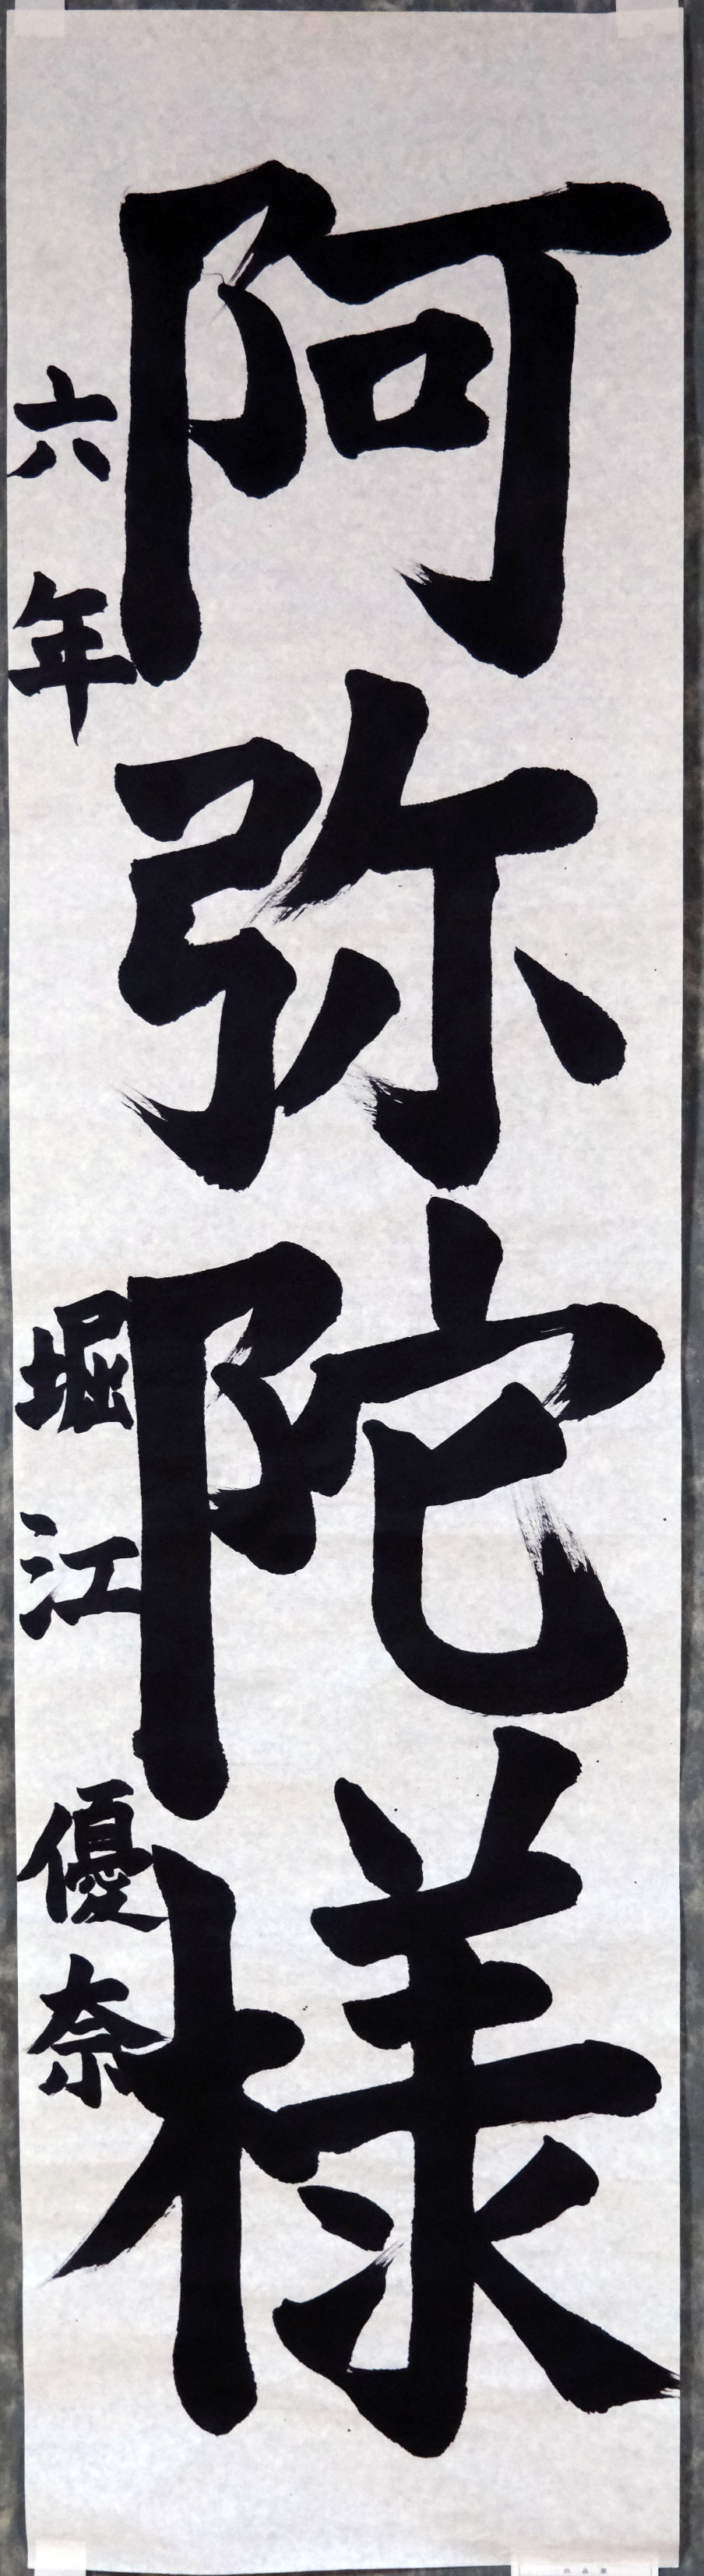 阿弥陀様
六年 堀江 優奈